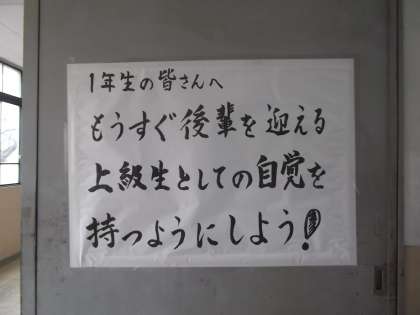 1年生の皆さんへ
もうすぐ後輩を迎える
上級生としての自覚を
持つようにしよう!